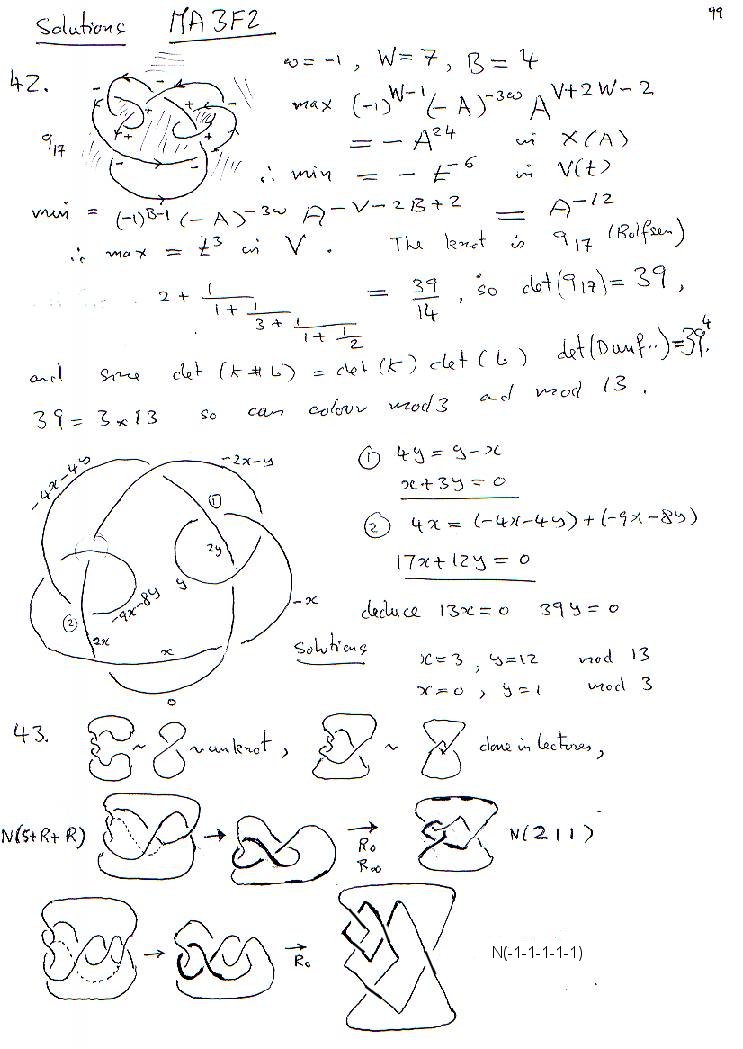 Solutions MA3F2 99
42.
w = -1, W = 7, B = 4
max (-1)^{W-1} (-A)^{-3w} A^{V+2W-2}
9_{17} = -A^{24} in X(A)
∴ min = -t^{-6} in V(t)
min = (-1)^{B-1} (-A)^{-3w} A^{-V-2B+2} = A^{-12}
∴ max = t^3 in V. The knot is 9_{17} (Rolfsen)
2 + 1/(1 + 1/(3 + 1/(1 + 1/2))) = 39/14, so det(9_{17}) = 39,
and since det(K # L) = det(K) det(L) det(Danf..) = 39^4.
39 = 3 × 13 so can colour mod 3 and mod 13.
-4x-4y
-2x-y
①
2y
y
-9x-8y
②
2x
x
-x
0
① 4y = y - x
x + 3y = 0
② 4x = (-4x-4y) + (-9x-8y)
17x + 12y = 0
deduce 13x = 0 39y = 0
Solutions x = 3, y = 12 mod 13
x = 0, y = 1 mod 3
43. ~ ~ unknot, ~ done in lectures,
N(5+R+R) → → R_0 R_∞ N(211)
→ → R_0 N(-1-1-1-1-1)